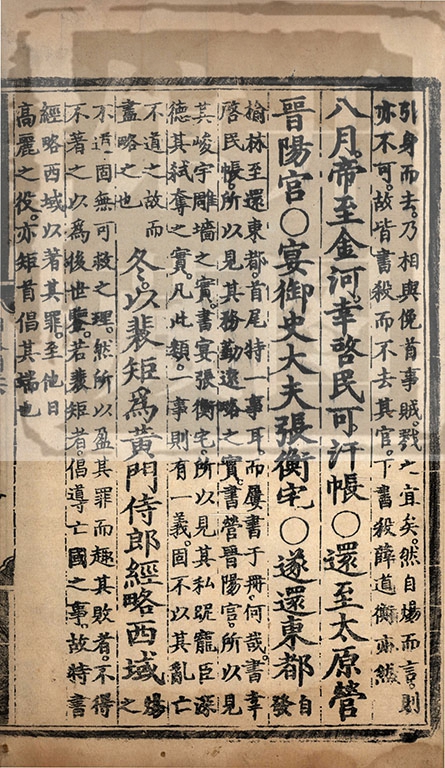 引身而去。乃相與俛首事賊。戮之宜矣。然自煬而言。則
亦不可。故皆書殺而不去其官。下書殺薛道衡亦然
八月。帝至金河。幸啓民可汗帳○還至太原營
晉陽宫○宴御史大夫張衡宅○遂還東都自發
榆林至還東都。首尾特一事耳。而屢書于冊。何哉。書幸
啓民帳。所以見其務勤遠略之實。書營晉陽宫。所以見
其峻宇雕墻之實。書宴張衡宅。所以見其私昵寵臣。深
德其弑奪之實。凡此類。一事則有一義。固不以其亂亡
不道之故而
盡略之也
冬。以裴矩為黃門侍郎經略西域煬之
不道。固無可救之理。然所以盈其罪而趣其敗者。不得
不著之以為後世鑒。若裴矩者。倡導亡國之事。故特書
經略西域以著其罪。至他日
高麗之役。亦矩首倡其端也